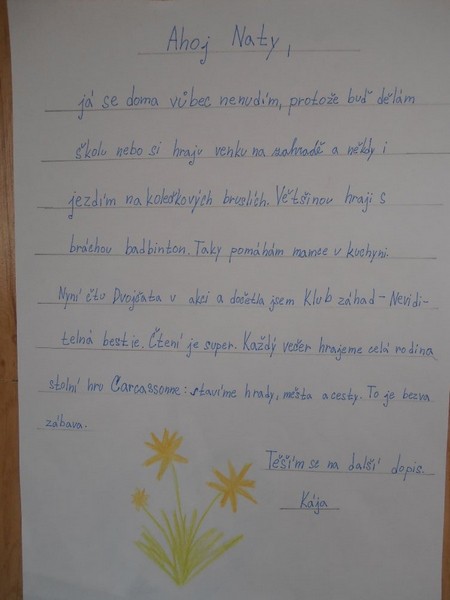 Ahoj Naty,
já se doma vůbec nenudím, protože buď dělám
školu nebo si hraju venku na zahradě a někdy i
jezdím na kolečkových bruslích. Většinou hraji s
bráchou badbinton. Taky pomáhám mamce v kuchyni.
Nyní čtu Dvojčata v akci a dočetla jsem Klub záhad - Nevidi-
telná bestie. Čtení je super. Každý večer hrajeme celá rodina
stolní hru Carcassonne: stavíme hrady, města a cesty. To je bezva
zábava.
Těším se na další dopis.
Kája